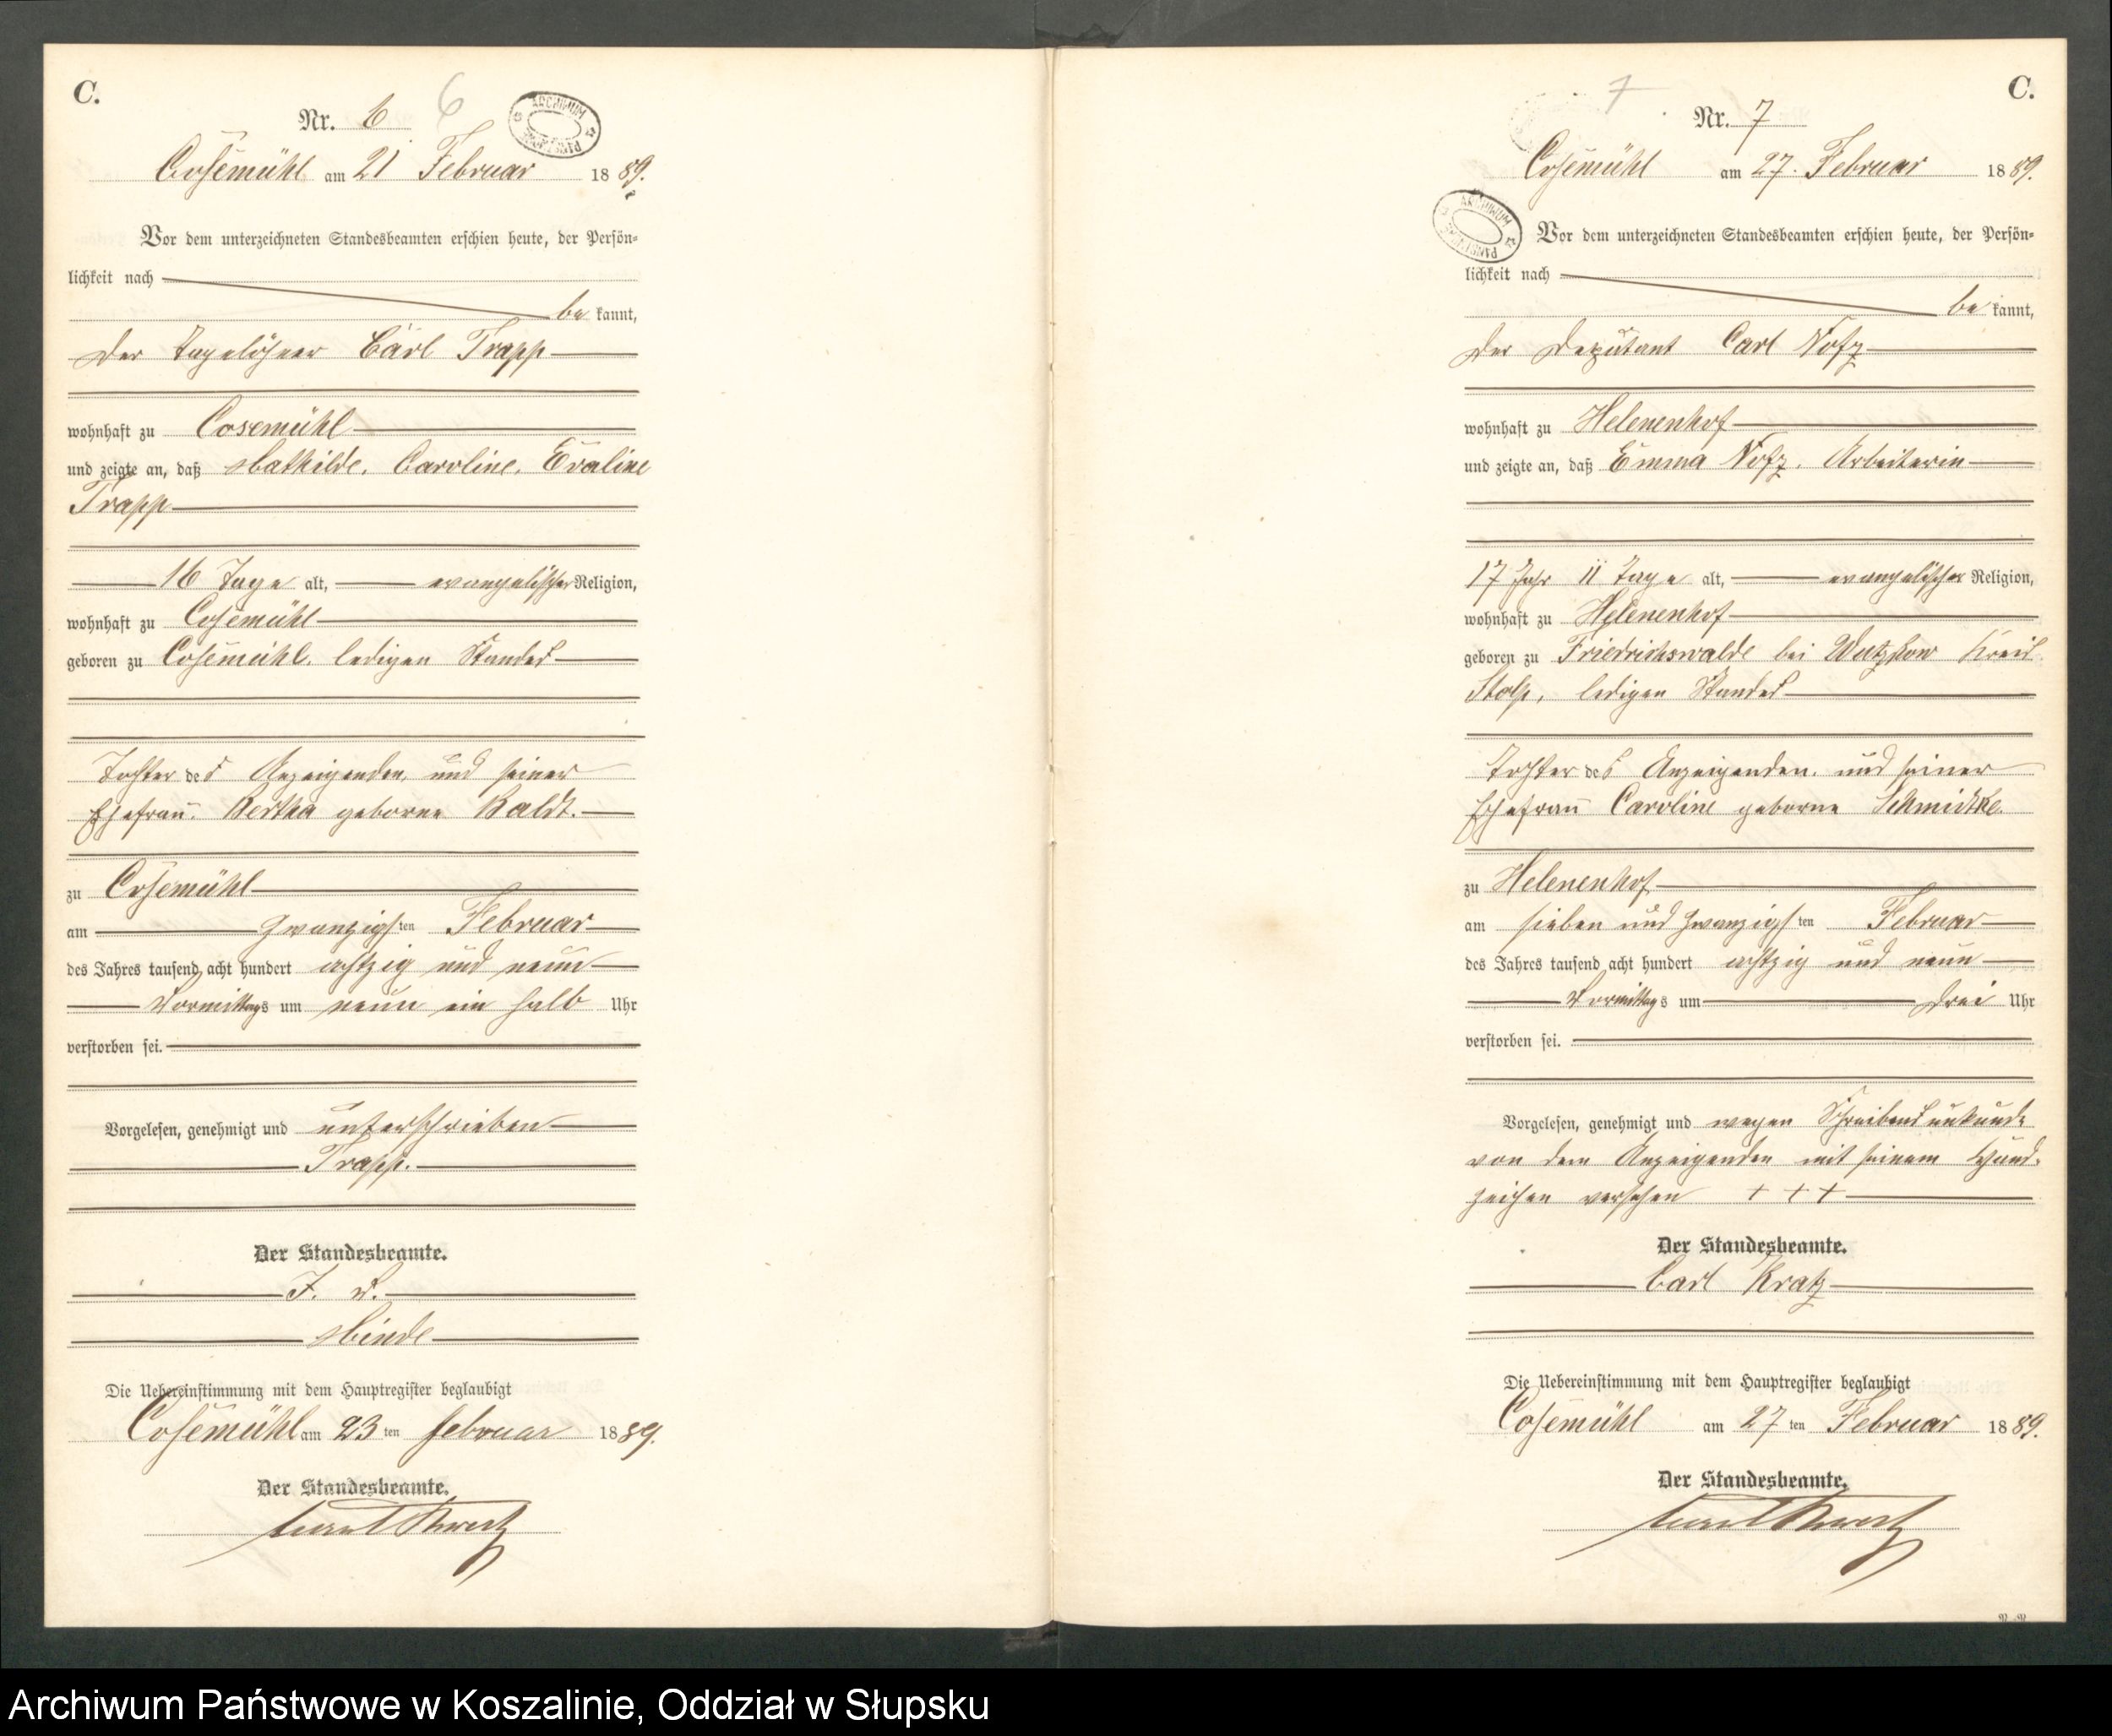 C.
Nr. 6 6
ARCHIWUM
Cosemühl am 21 Februar 1889.
Vor dem unterzeichneten Standesbeamten erschien heute, der Persön-
lichkeit nach
be kannt,
der Tagelöhner Carl Trapp
wohnhaft zu Cosemühl
und zeigte an, daß Mathilde, Caroline, Evaline
Trapp
16 Tage alt, evangelischer Religion,
wohnhaft zu Cosemühl
geboren zu Cosemühl, ledigen Standes
Tochter des Anzeigenden, und seiner
Ehefrau, Bertha geborne Baldt.
zu Cosemühl
am zwanzigsten Februar
des Jahres tausend acht hundert achtzig und neun
Vormittags um neun ein halb Uhr
verstorben sei.
Vorgelesen, genehmigt und unterschrieben
Trapp.
Der Standesbeamte.
J. V.
Minde
Die Uebereinstimmung mit dem Hauptregister beglaubigt
Cosemühl am 23 ten Februar 1889.
Der Standesbeamte.
Carl Kratz
C.
7
Nr. 7
Cosemühl am 27. Februar 1889.
ARCHIWUM
Vor dem unterzeichneten Standesbeamten erschien heute, der Persön-
lichkeit nach
be kannt,
der Deputant Carl Nofz
wohnhaft zu Helenenhof
und zeigte an, daß Emma Nofz, Arbeiterin
17 Jahr 11 Tage alt, evangelischer Religion,
wohnhaft zu Helenenhof
geboren zu Friedrichswalde bei Wutzkow Kreis
Stolp, ledigen Standes
Tochter des Anzeigenden, und seiner
Ehefrau Caroline geborne Schmidtke.
zu Helenenhof
am sieben und zwanzigsten Februar
des Jahres tausend acht hundert achtzig und neun
Vormittags um drei Uhr
verstorben sei.
Vorgelesen, genehmigt und wegen Schreibensunkunde
von dem Anzeigenden mit seinem Hand-
zeichen versehen + + +
Der Standesbeamte.
Carl Kratz
Die Uebereinstimmung mit dem Hauptregister beglaubigt
Cosemühl am 27 ten Februar 1889.
Der Standesbeamte.
Carl Kratz
Archiwum Państwowe w Koszalinie, Oddział w Słupsku